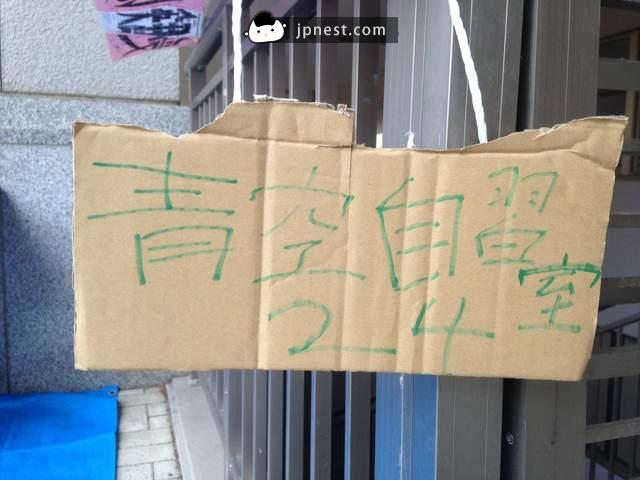 jpnest.com
青空自習室
24